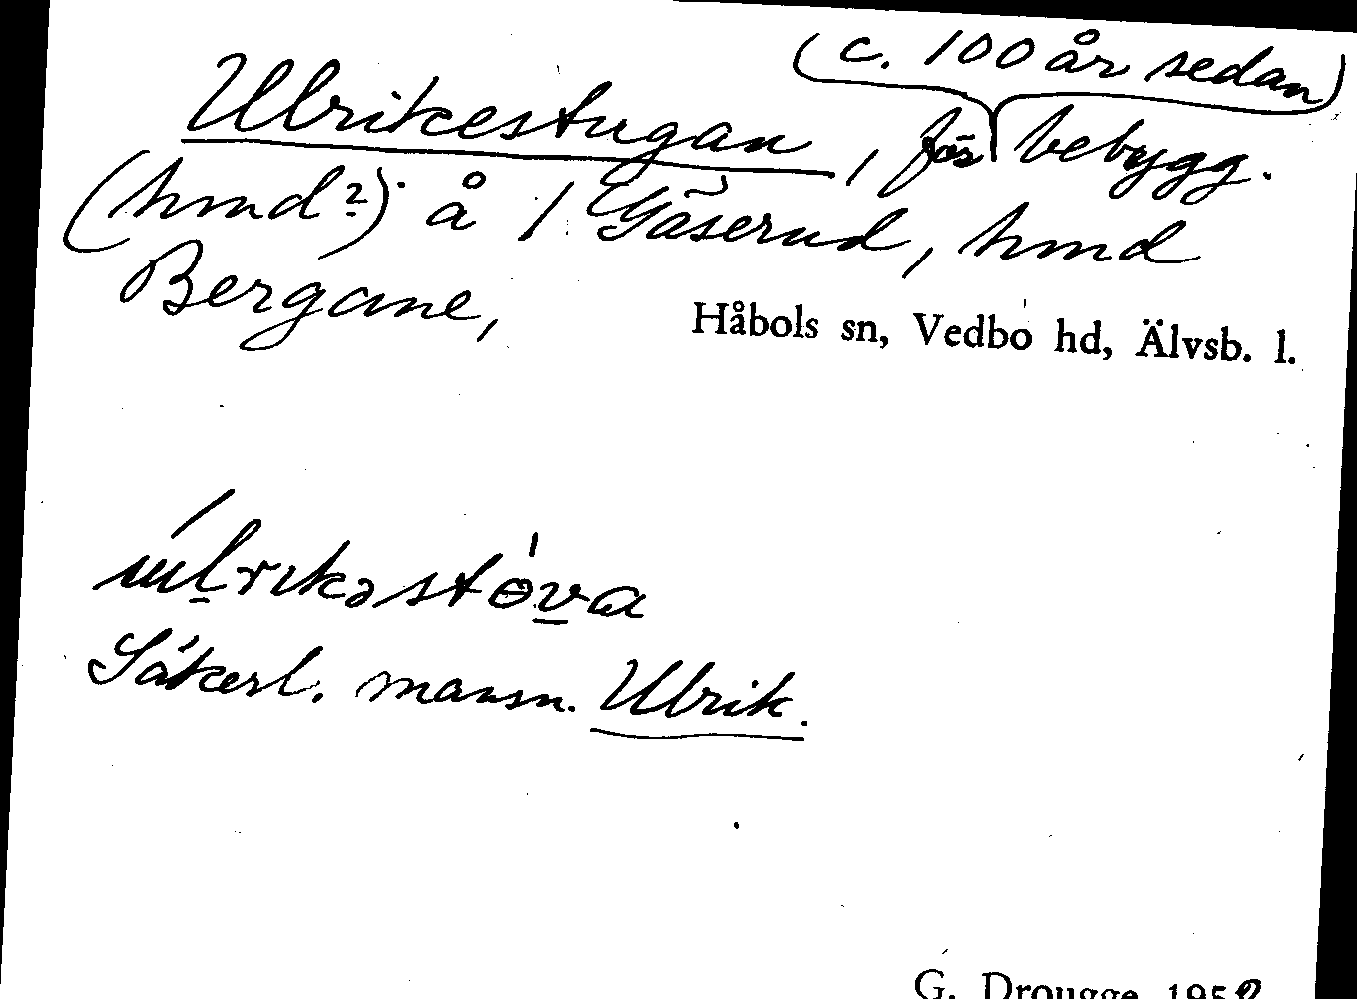 (c. 100 år sedan)
Ulrikestugan, för bebygg.
(hmd?) å 1 Gåserud, hmd
Bergane,
Håbols sn, Vedbo hd, Älvsb. l.
ulrikəstöva
Säkerl. mansn. Ulrik.
G. Drougge 1952